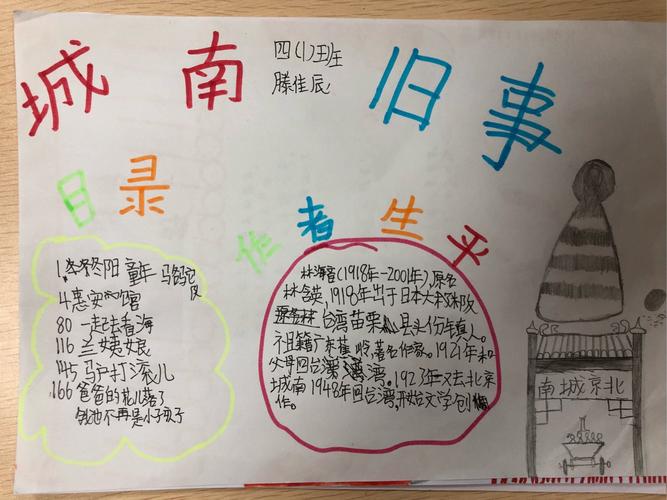 城南旧事
四(1)班
滕佳辰
目录
1.冬阳 童年 骆驼队
4.惠安馆
80 一起去看海
116 兰姨娘
145 驴打滚儿
166 爸爸的花儿落了
我也不再是小孩子
作者生平
林海音(1918年-2001年),原名
林含英,1918年出于日本大阪
台湾苗栗 县头份镇人。
祖籍广东蕉岭,著名作家。1921年和
父母回台湾。1923年又去北京
城南 1948年回台湾,开始文学创
作。
南城京北